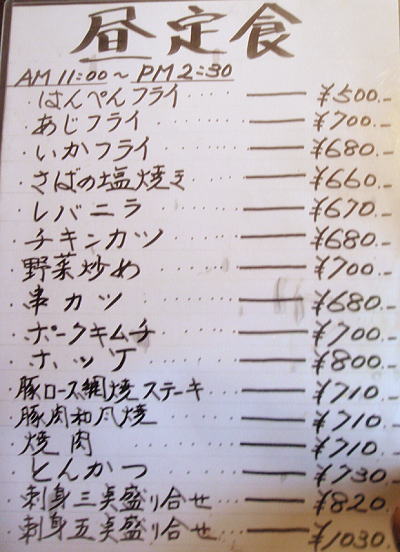 昼定食
AM 11:00〜PM 2:30
・はんぺんフライ ¥500.-
・あじフライ ¥700.-
・いかフライ ¥680.-
・さばの塩焼き ¥660.-
・レバニラ ¥670.-
・チキンカツ ¥680.-
・野菜炒め ¥700.-
・串カツ ¥680.-
・ポークキムチ ¥700.-
・ホッケ ¥800.-
豚ロース網焼ステーキ ¥710.-
豚肉和風焼 ¥710.-
・焼肉 ¥710.-
・とんかつ ¥730.-
・刺身三点盛り合せ ¥820.-
・刺身五点盛り合せ ¥1030.-